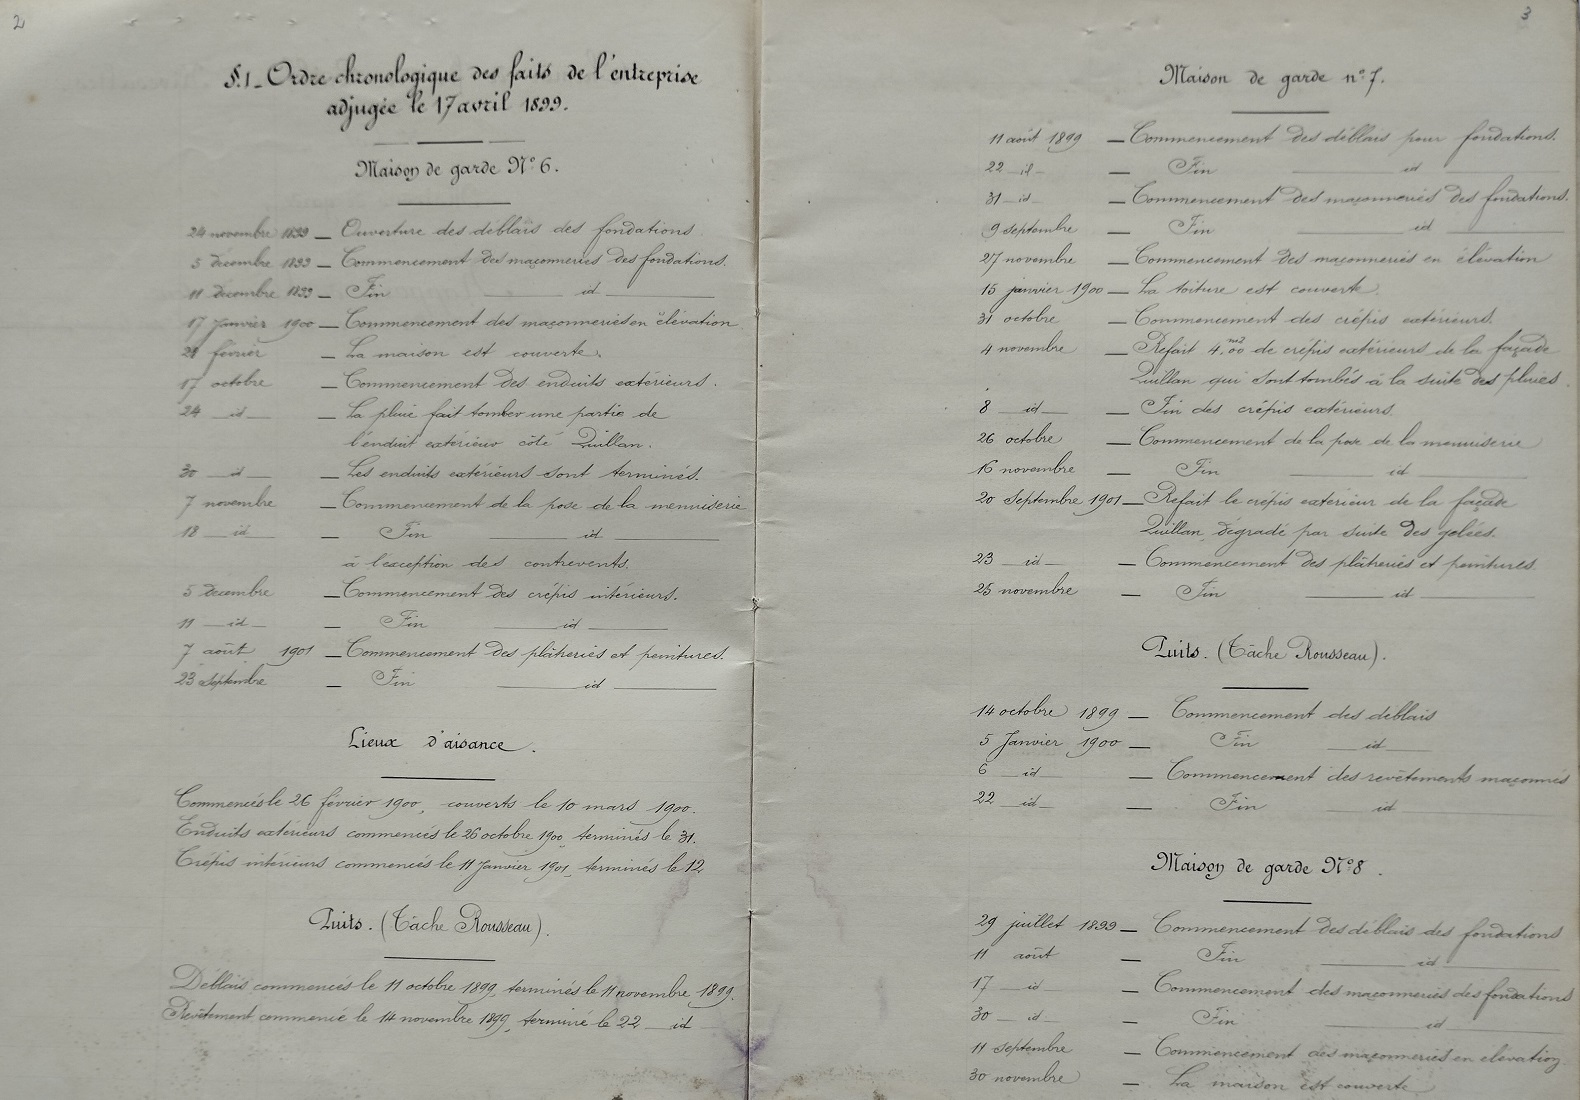 2
§.1_ Ordre chronologique des faits de l'entreprise
adjugée le 17 avril 1899.
Maison de garde N° 6.
24 novembre 1899 _ Ouverture des déblais des fondations.
5 décembre 1899 _ Commencement des maçonneries des fondations.
11 décembre 1899 _ Fin ___ id ___
17 Janvier 1900 _ Commencement des maçonneries en élévation
février _ La maison est couverte.
17 octobre _ Commencement des enduits extérieurs.
24 _ id _ _ La pluie fait tomber une partie de
l'enduit extérieur côté Quillan.
30 _ id _ _ Les enduits extérieurs sont terminés.
7 novembre _ Commencement de la pose de la menuiserie
18 _ id _ _ Fin ___ id ___
à l'exception des contrevents.
5 décembre _ Commencement des crépis intérieurs.
11 _ id _ _ Fin ___ id ___
7 août 1901 _ Commencement des plâtreries et peintures.
23 septembre _ Fin ___ id ___
Lieux d'aisance.
Commencés le 26 février 1900, couverts le 10 mars 1900.
Enduits extérieurs commencés le 26 octobre 1900, terminés le 31.
Crépis intérieurs commencés le 11 Janvier 1901, terminés le 12
Puits. (Tâche Rousseau).
Déblais commencés le 11 octobre 1899, terminés le 11 novembre 1899.
Revêtement commencé le 14 novembre 1899, terminé le 22 _ id
3
Maison de garde n° 7.
11 août 1899 _ Commencement des déblais pour fondations.
22 _ id _ _ Fin ___ id ___
31 _ id _ _ Commencement des maçonneries des fondations.
9 septembre _ Fin ___ id ___
27 novembre _ Commencement des maçonneries en élévation
15 janvier 1900 _ La toiture est couverte.
31 octobre _ Commencement des crépis extérieurs.
4 novembre _ Refait 4,m2 00 de crépis extérieurs de la façade
Quillan qui sont tombés à la suite des pluies.
8 _ id _ _ Fin des crépis extérieurs.
26 octobre _ Commencement de la pose de la menuiserie
16 novembre _ Fin ___ id ___
20 Septembre 1901 _ Refait le crépis extérieur de la façade
Quillan, dégradé par suite des gelées.
23 _ id _ _ Commencement des plâtreries et peintures.
25 novembre _ Fin ___ id ___
Puits. (Tâche Rousseau).
14 octobre 1899 _ Commencement des déblais
5 Janvier 1900 _ Fin ___ id ___
6 _ id _ _ Commencement des revêtements maçonnés
22 _ id _ _ Fin ___ id ___
Maison de garde N° 8.
29 juillet 1899 _ Commencement des déblais des fondations
11 août _ Fin ___ id ___
17 _ id _ _ Commencement des maçonneries des fondations
30 _ id _ _ Fin ___ id ___
11 septembre _ Commencement des maçonneries en élévation
30 novembre _ La maison est couverte